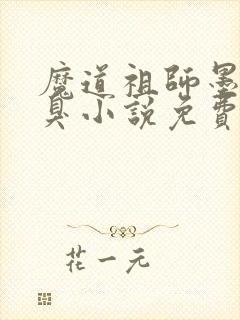 魔道祖師墨
臭小說免費
花一元